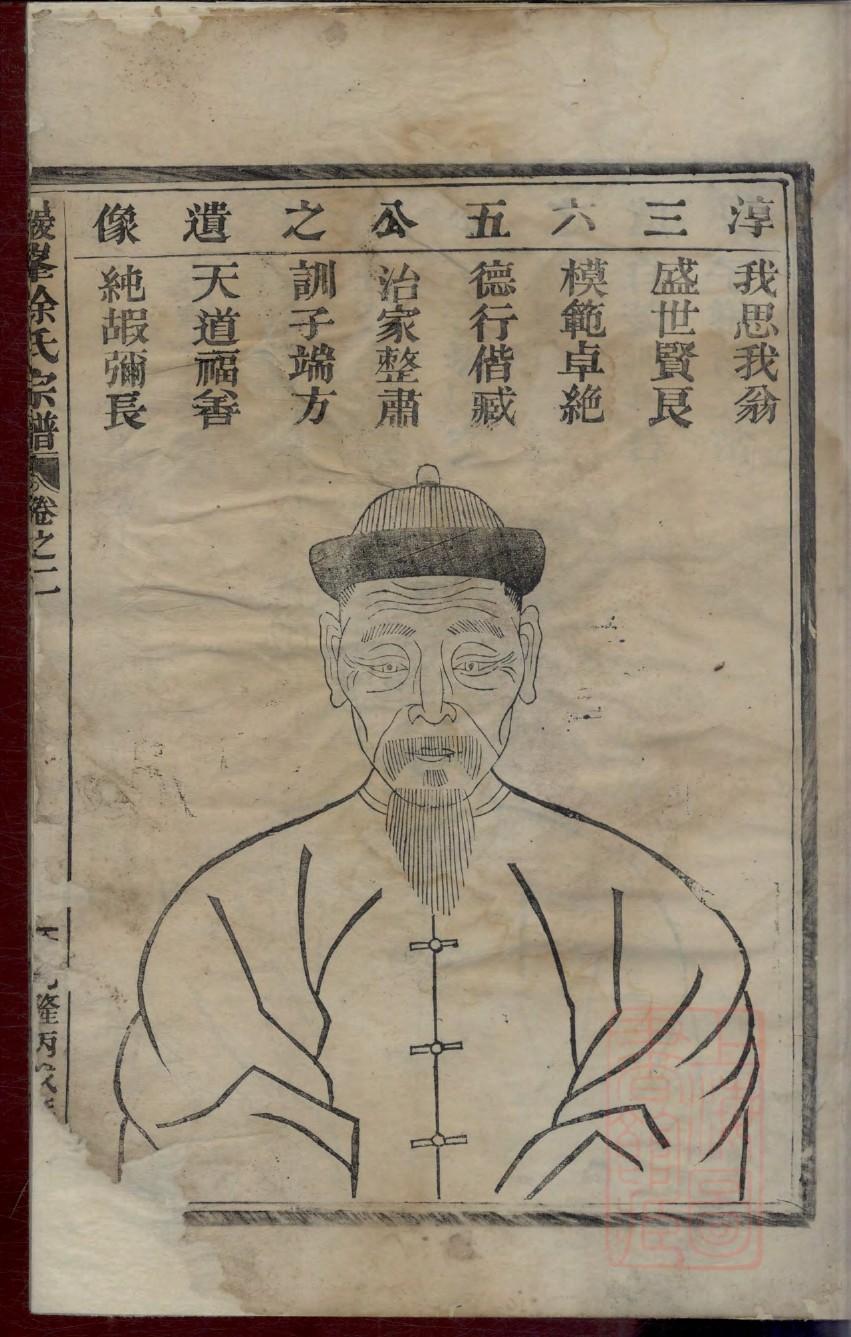 淳三六五公之遺像
我思我翁
盛世賢良
模範卓絶
德行偕臧
治家整肅
訓子端方
天道福善
純嘏彌長
徐氏宗譜
卷之二
隆丙